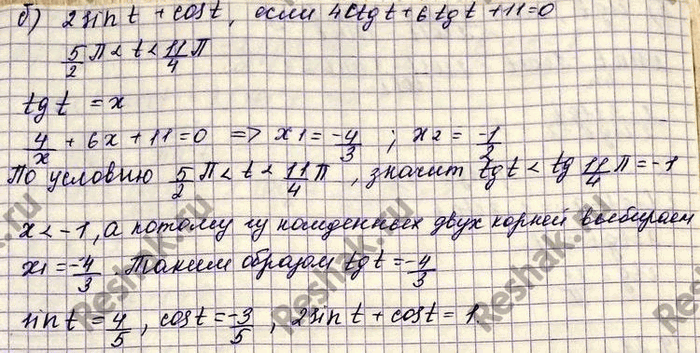 б) 2sin t + cos t, если 4ctg t + 6 tg t + 11 = 0
5/2 П < t < 11/4 П
tg t = x
4/x + 6x + 11 = 0 => x1 = -4/3 ; x2 = -1/2
По условию 5/2 П < t < 11/4 П, значит tg t < tg 11/4 П = -1
x < -1, а потому из найденных двух корней выбираем
x1 = -4/3. Таким образом tg t = -4/3
sin t = 4/5, cos t = -3/5, 2sin t + cos t = 1.
Reshak.ru
Reshak.ru
Reshak.ru